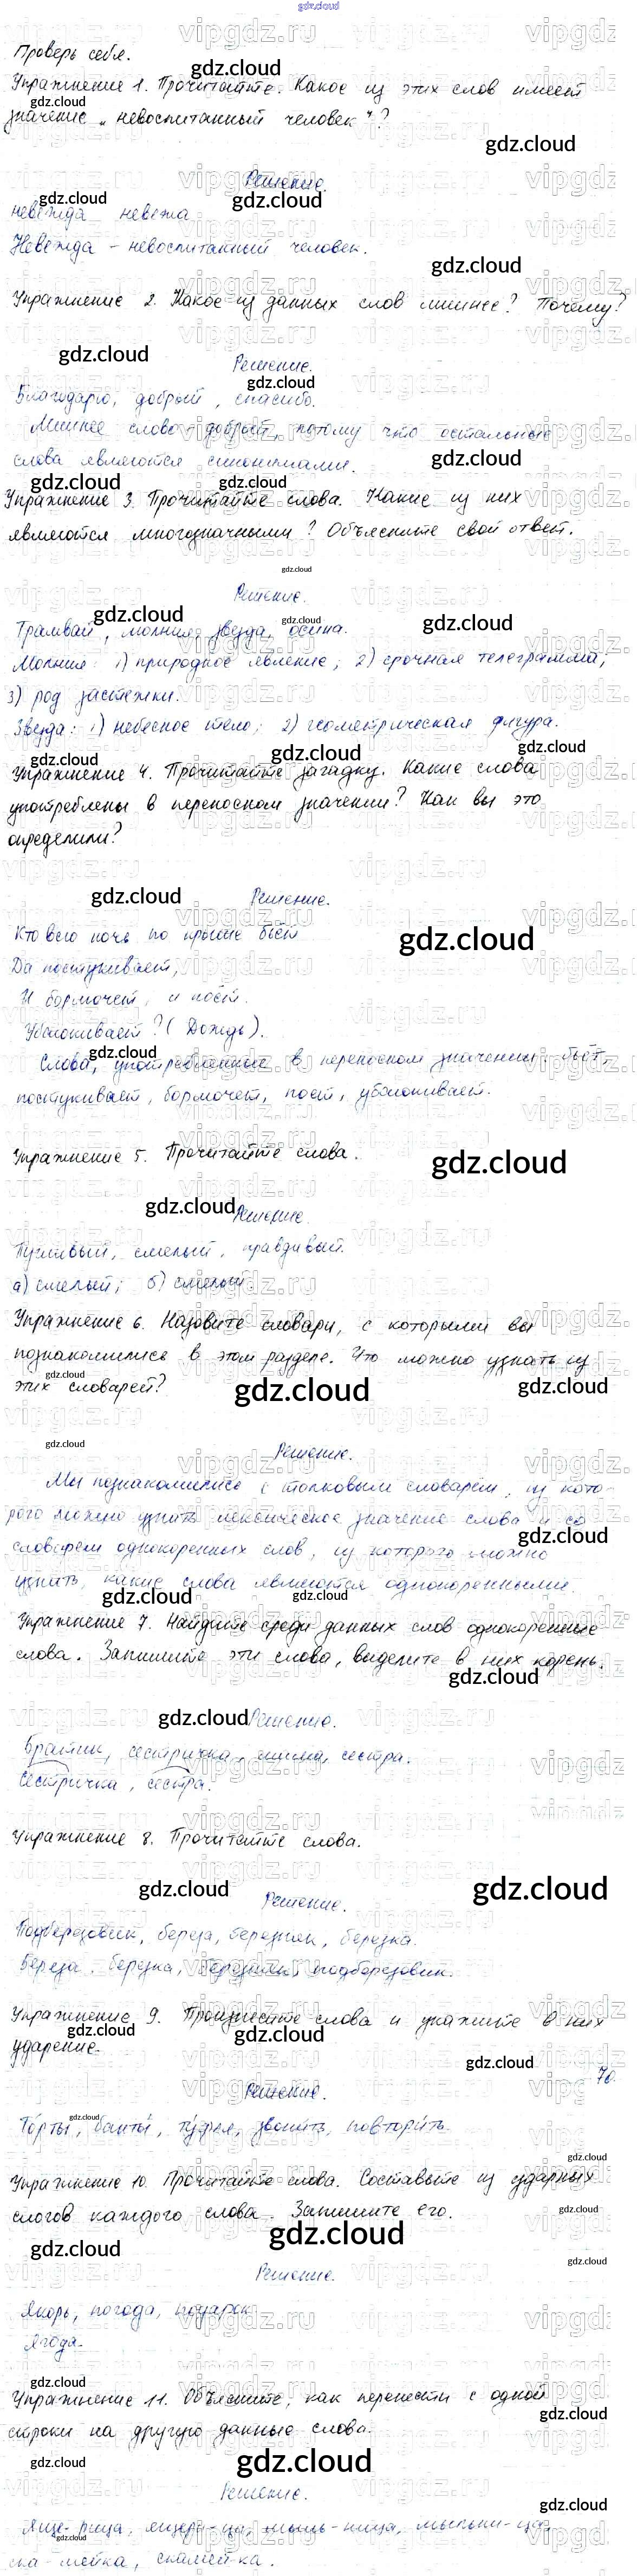 gdz.cloud
Проверь себя.
Упражнение 1. Прочитайте. Какое из этих слов имеет
значение „невоспитанный человек"?
Решение.
невежда невежа
Невежда – невоспитанный человек.
Упражнение 2. Какое из данных слов лишнее? Почему?
Решение.
Благодарю, добрый, спасибо.
Лишнее слово – добрый, потому что остальные
слова являются синонимами.
Упражнение 3. Прочитайте слова. Какие из них
являются многозначными? Объясните свой ответ.
Решение.
Трамвай, молния, звезда, осина.
Молния: 1) природное явление; 2) срочная телеграмма;
3) род застежки.
Звезда: 1) небесное тело; 2) геометрическая фигура.
Упражнение 4. Прочитайте загадку. Какие слова
употреблены в переносном значении? Как вы это
определили?
Решение.
Кто всю ночь по крыше бьёт
Да постукивает,
И бормочет, и поёт,
Убаюкивает? (Дождь).
Слова, употребленные в переносном значении: бьёт,
постукивает, бормочет, поет, убаюкивает.
Упражнение 5. Прочитайте слова.
Решение.
Пугливый, смелый, правдивый.
а) смелый; б) смелый.
Упражнение 6. Назовите словари, с которыми вы
познакомились в этом разделе. Что можно узнать из
этих словарей?
Решение.
Мы познакомились с толковым словарем, из кото-
рого можно узнать лексическое значение слова и со
словарем однокоренных слов, из которого можно
узнать, какие слова являются однокоренными.
Упражнение 7. Найдите среди данных слов однокоренные
слова. Запишите эти слова, выделите в них корень.
Решение.
Братик, сестричка, мама, сестра.
Сестричка, сестра.
Упражнение 8. Прочитайте слова.
Решение.
Подберезовик, береза, березняк, березка.
Береза, березка, березняк, подберезовик.
Упражнение 9. Произнесите слова и укажите в них
ударение.
Решение.
То́рты, ба́нты, ту́фля, звони́ть, повтори́ть.
Упражнение 10. Прочитайте слова. Составьте из ударных
слогов каждого слова. Запишите его.
Решение.
Якорь, погода, подарок.
Ягода.
Упражнение 11. Объясните, как перенести с одной
строки на другую данные слова.
Решение.
Яще-рица, ящери-ца, мыль-ница, мыльни-ца,
ска-мейка, скамей-ка.